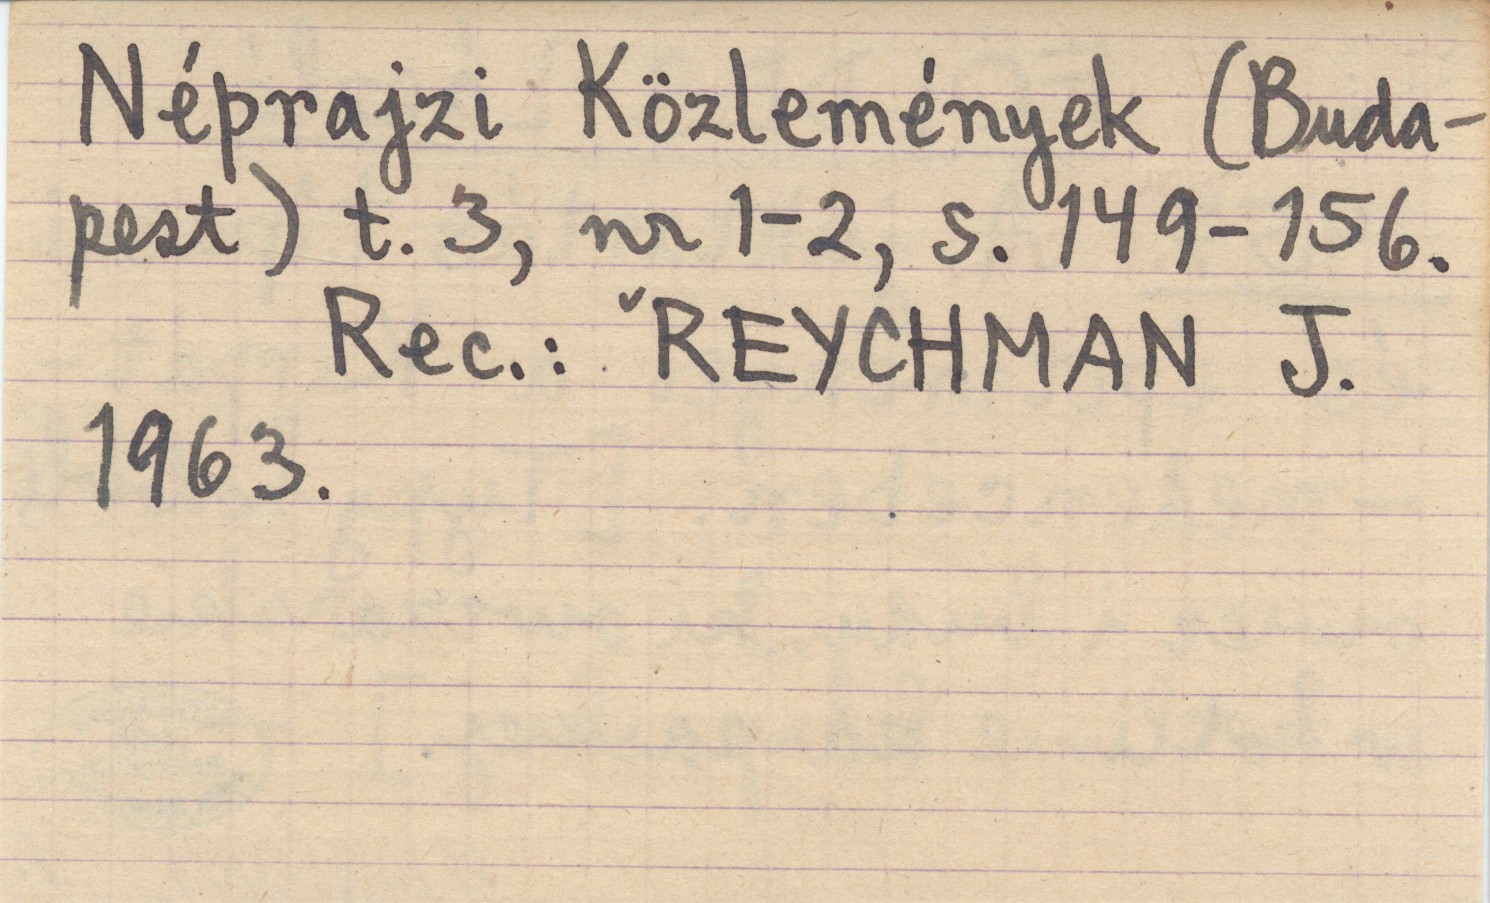 Néprajzi Közlemények (Buda-
pest) t. 3, nr 1-2, s. 149-156.
Rec.: ˇREYCHMAN J.
1963.